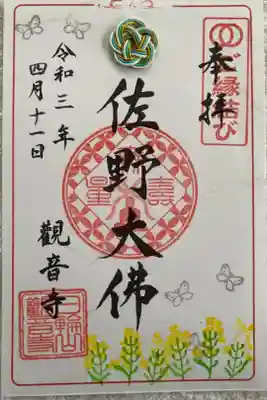 奉拝
ご縁結び
佐野大佛
令和三年
四月十一日
觀音寺